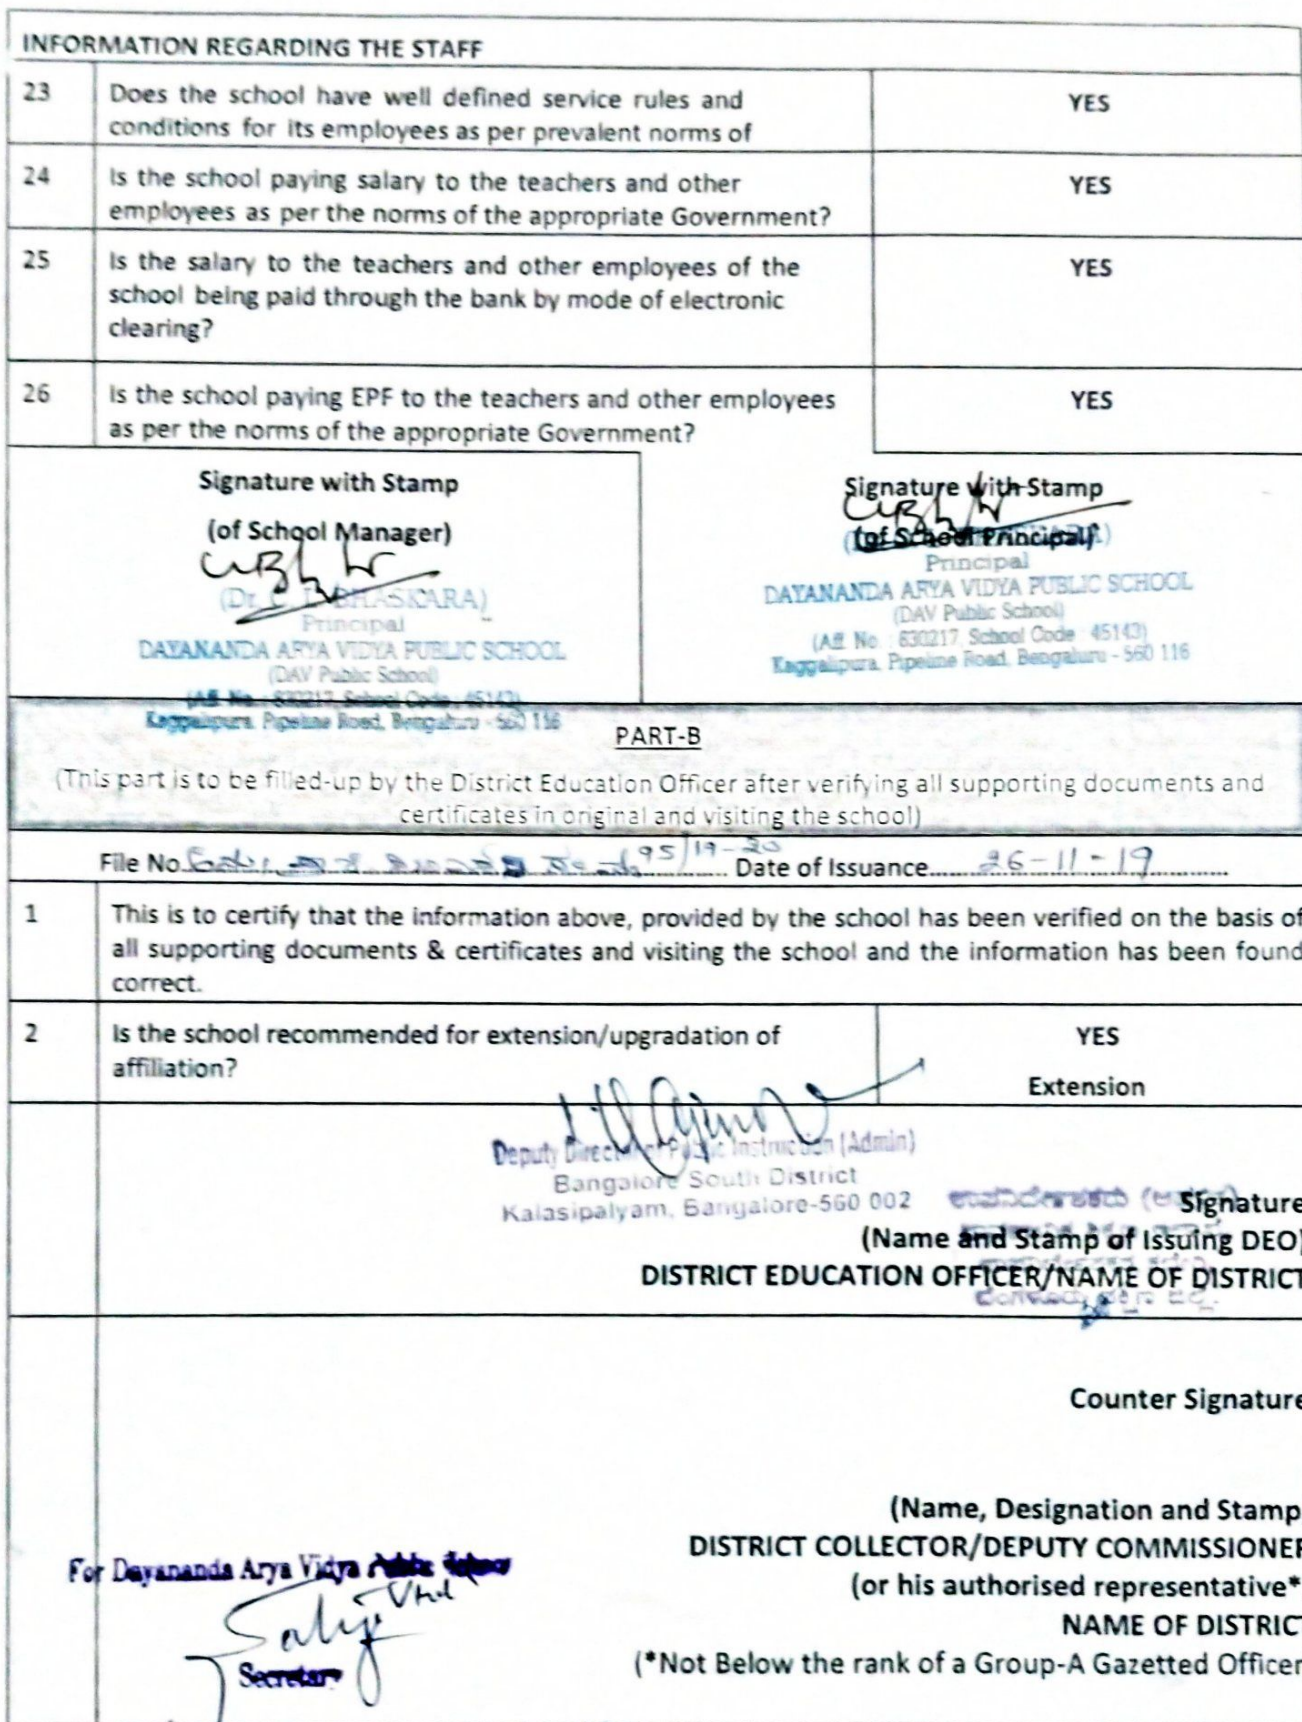 INFORMATION REGARDING THE STAFF
23 Does the school have well defined service rules and YES
conditions for its employees as per prevalent norms of
24 Is the school paying salary to the teachers and other YES
employees as per the norms of the appropriate Government?
25 Is the salary to the teachers and other employees of the YES
school being paid through the bank by mode of electronic
clearing?
26 Is the school paying EPF to the teachers and other employees YES
as per the norms of the appropriate Government?
Signature with Stamp
(of School Manager)
(Dr. BHASKARA)
Principal
DAYANANDA ARYA VIDYA PUBLIC SCHOOL
(DAV Public School)
(Aff. No. : 830217, School Code : 45143)
Kaggalipura, Pipeline Road, Bengaluru - 560 116
Signature with Stamp
(of School Principal)
Principal
DAYANANDA ARYA VIDYA PUBLIC SCHOOL
(DAV Public School)
(Aff. No : 830217, School Code : 45143)
Kaggalipura, Pipeline Road, Bengaluru - 560 116
PART-B
(This part is to be filled-up by the District Education Officer after verifying all supporting documents and
certificates in original and visiting the school)
File No. 95/19-20 Date of Issuance 26-11-19
1 This is to certify that the information above, provided by the school has been verified on the basis of
all supporting documents & certificates and visiting the school and the information has been found
correct.
2 Is the school recommended for extension/upgradation of YES
affiliation?
Extension
Deputy Director of Public Instruction (Admin)
Bangalore South District
Kalasipalyam, Bangalore-560 002
ಉಪನಿರ್ದೇಶಕರು
Signature
(Name and Stamp of Issuing DEO)
DISTRICT EDUCATION OFFICER/NAME OF DISTRICT
Counter Signature
(Name, Designation and Stamp
DISTRICT COLLECTOR/DEPUTY COMMISSIONER
(or his authorised representative*
NAME OF DISTRICT
(*Not Below the rank of a Group-A Gazetted Officer
For Dayananda Arya Vidya Public School
Secretary